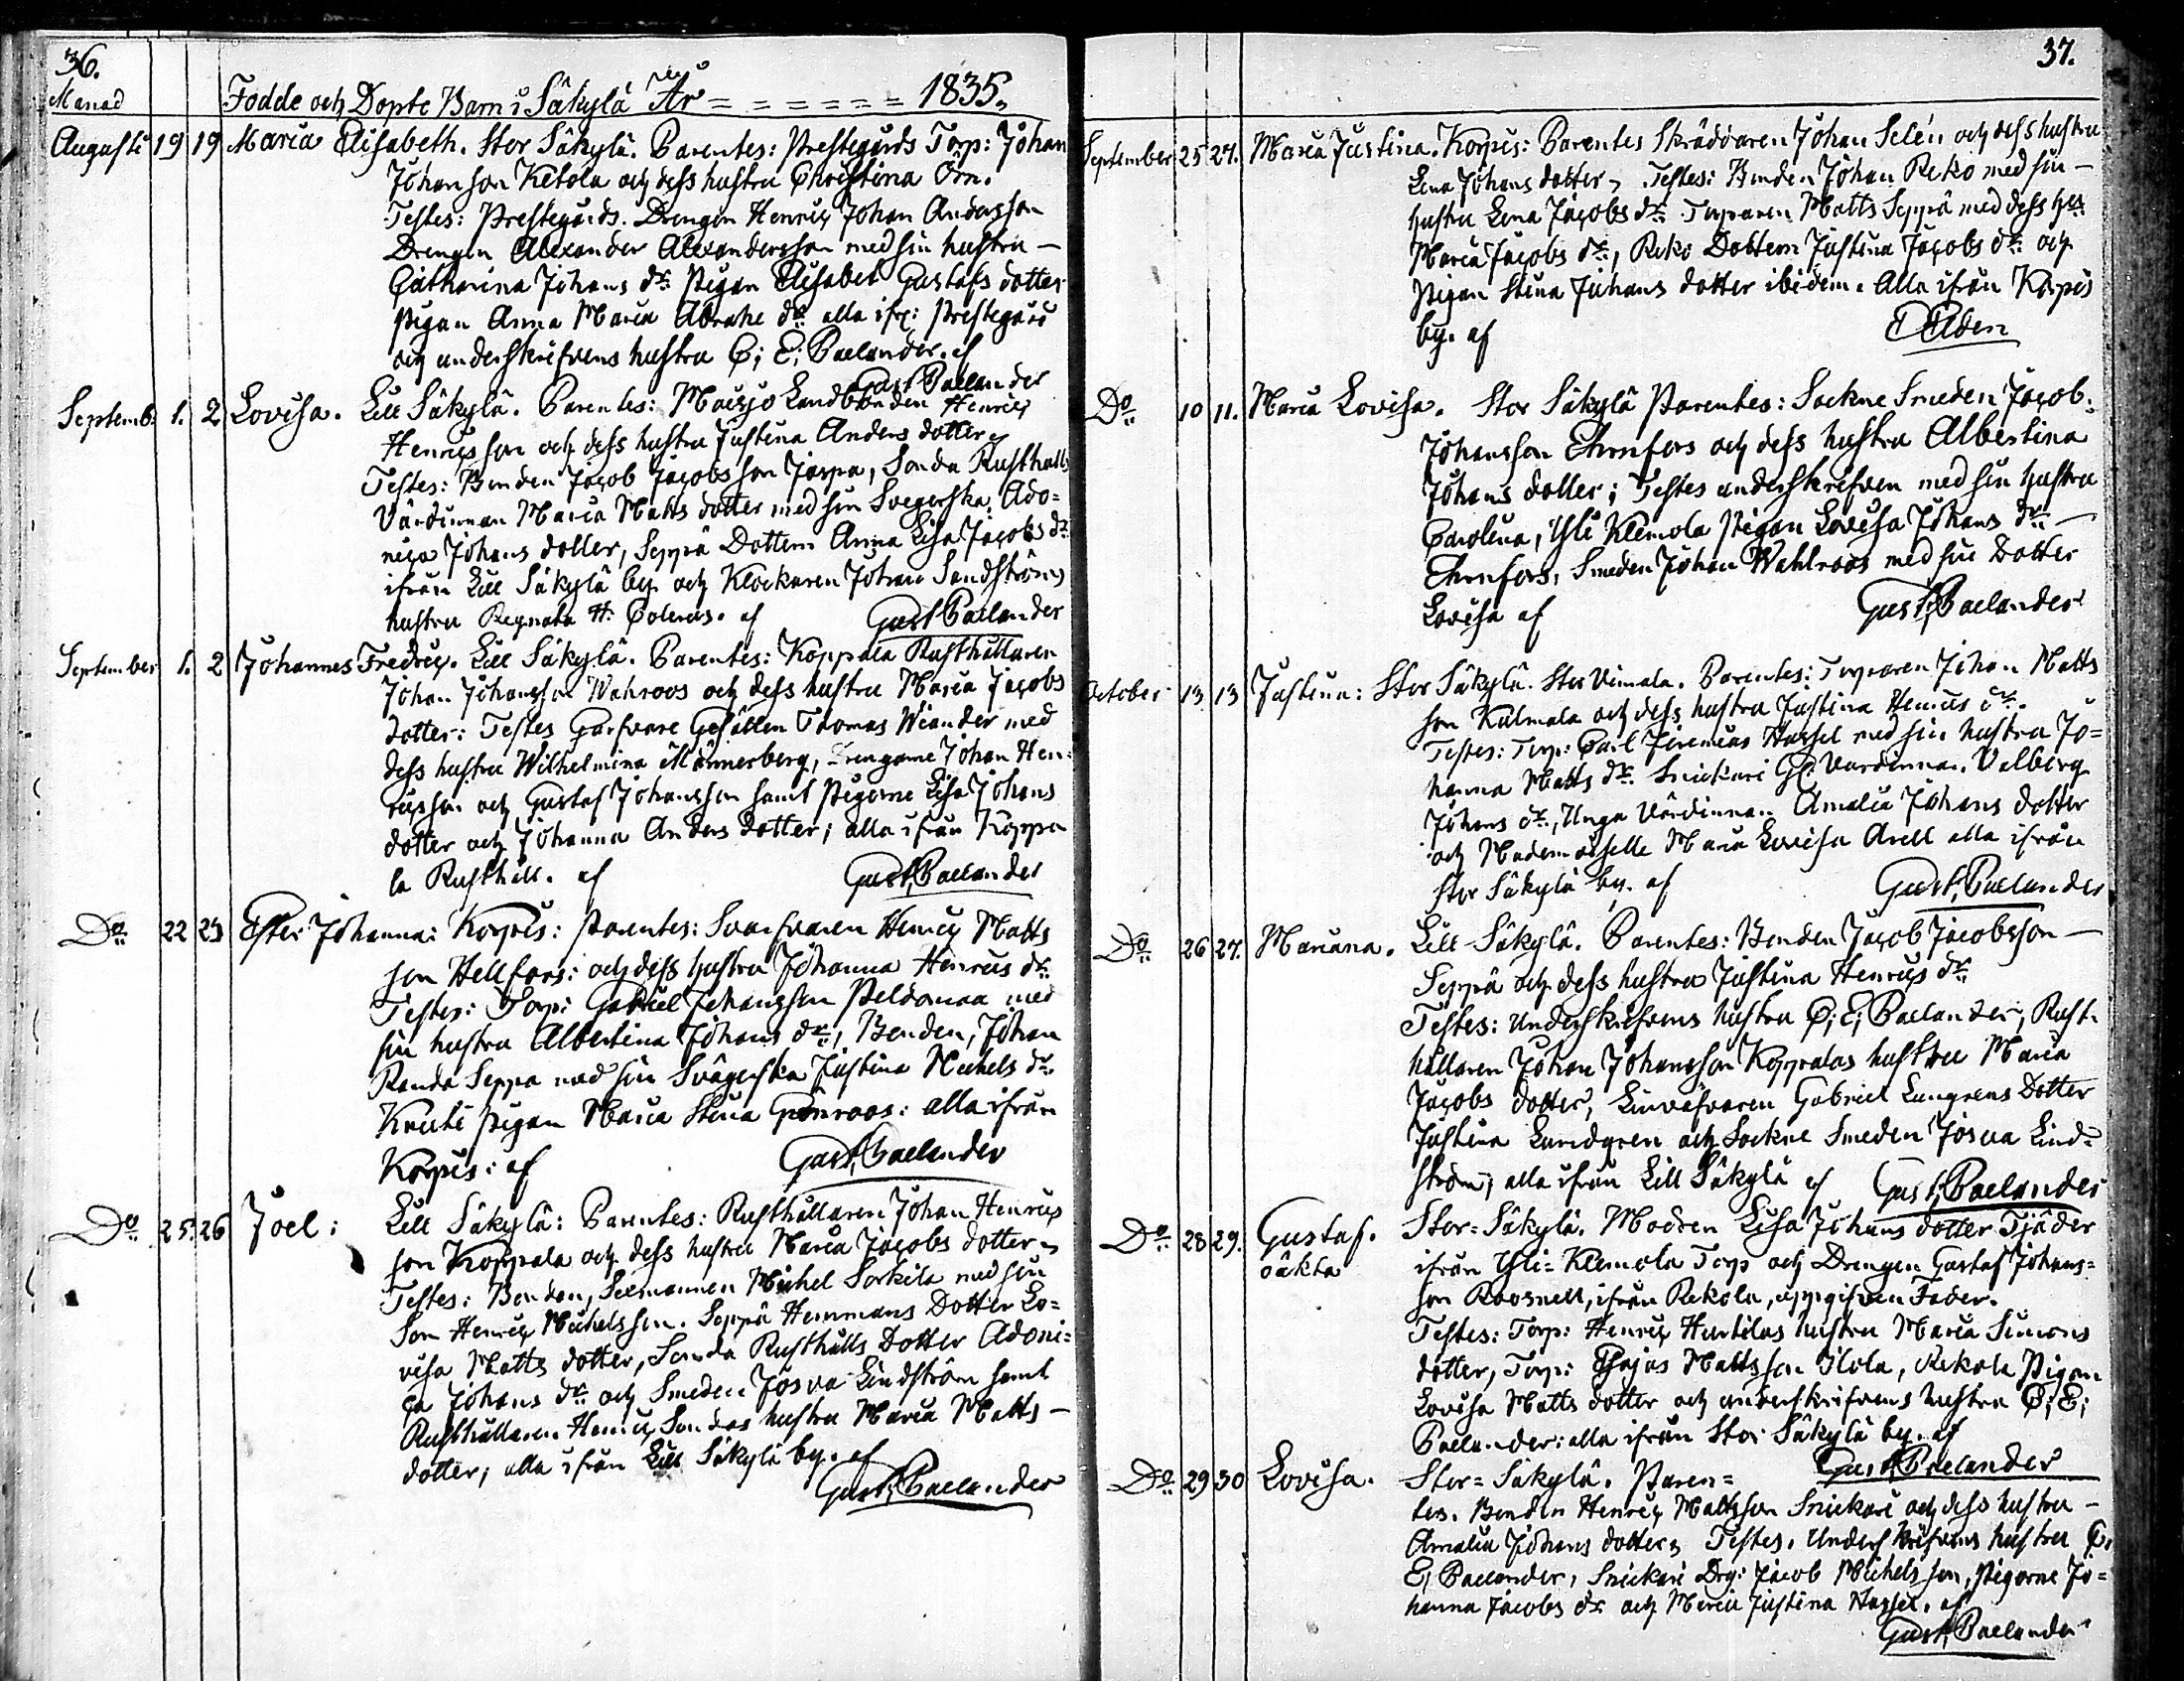 36.
Manad
Fodde och Dopte Barn i Säkylä År = = = = = = 1835.
Augusti 19 19 Maria Elisabeth. Stor Säkylä. Parentes: Prestegårds Torp: Johan
Johansson Ketola och dess hustru Christina Örn.
Testes: Prestegårds. Drengen Henric Johan Andersson
Drengen Alexander Alexandersson med sin hustru —
Catharina Johans dr: Pigan Elisabet Gustafs dotter
Pigan Anna Maria Abrahe dr: alla ifr: Prestegård
och underskrifvens hustru C; E; Paelander. af
Gust Paelander
Septemb. 1. 2 Lovisa. Lill Säkylä. Parentes: Maisjo Landbonden Henric
Henricsson och dess hustru Justina Anders dotter,
Testes: Bonden Jacob Jacobsson Jaspa, Sonda Rusthålls
Värdinnan Maria Matts dotter med sin Svegerska, Ado=
nica Johans dotter, Seppä Dottern Anna Lisa Jacobs dr:
ifrån Lill Säkylä by och Klockaren Johan Sandströms
hustru Regnata H: Polenus. af Gust Paelander
September 1. 2 Johannes Fredric. Lill Säkylä. Parentes: Koppala Rusthållaren
Johan Johansson Wahroos och dess hustru Maria Jacobs
dotter: Testes Garfvare Gesällen Thomas Wiander med
dess hustru Wilhelmina Mannerberg, Drengarne Johan Hen=
ricsson och Gustaf Johansson samt Pigorne Lisa Johans
dotter och Johanna Anders dotter; alla ifrån Koppa
la Rusthåll. af Gust; Paelander
Do 22 23 Ester Johanna: Korpis: Parentes: Svarfvaren Henric Matts
son Hellfors: och dess hustru Johanna Henrics dr:
Testes: Torp: Gabriel Johansson Peldomaa med
sin hustru Albertina Johans dr:, Bonden, Johan
Randa Seppa med sin Svägerska Justina Michels dr:
Knuti Pigan Maria Stina Grönroos: alla ifrån
Korpis: af Gust; Paelander
Do 25. 26 Joel: Lill Säkylä: Parentes: Rusthållaren Johan Henrics
son Koppala och dess hustru Maria Jacobs dotter,
Testes: Bonden, Sexmannen Michel Sorkila med sin
Son Henric Michelsson. Seppä Hemmans Dotter Lo=
visa Matts dotter, Sonda Rusthålls Dotter Adoni=
ca Johans dr: och Smeden Josva Lindström samt
Rusthållaren Henric Sondas hustru Maria Matts —
dotter; alla ifrån Lill Säkylä by. af
Gust; Paelander
37.
September 25 27. Maria Justina. Korpis: Parentes Skräddaren Johan Selén och dess hustru
Lena Johans dotter, Testes: Bonden Johan Reko med sin —
hustru Lena Jacobs dr: Torparen Matts Seppä med dess hu:
Maria Jacobs dr:, Reko Dottern Justina Jacobs dr: och
Pigan Stina Johans dotter ibidem. Alla ifrån Korpis
by. af
Do 10 11. Maria Lovisa. Stor Säkylä Parentes: Sockne Smeden Jacob
Johansson Ehrnfors och dess hustru Albertina
Johans dotter; Testes underskrefven med sin hustru
Carolina, Yli Klemola Pigan Lovisa Johans dr: —
Ehrnfors, Smeden Johan Wahlroos med sin Dotter
Lovisa af Gust; Paelander
October 13 13 Justina: Stor Säkylä. Stor Vimala. Parentes: Torparen Johan Matts
son Kulmala och dess hustru Justina Henrics dr:
Testes: Torp: Carl Jeremias Hassel med sin hustru Jo=
hanna Matts dr: Snickari Gl: Vardinnan. Valberg
Johans dr:, Unga Värdinnan Amalia Johans dotter
och Mademoiselle Maria Lovisa Arell alla ifrån
Stor Säkylä by. af Gust; Paelander
Do 26 27. Mariana. Lill-Säkylä. Parentes: Bonden Jacob Jacobsson —
Seppä och dess hustru Justina Henrics dr:
Testes: Underskrifvens hustru C; E; Paelander; Rust-
hållaren Johan Johansson Koppalas hustru Maria
Jacobs dotter, Linväfvaren Gabriel Lungrens Dotter
Justina Lundgren och Sockne Smeden Josua Lind=
ström; alla ifrån Lill Säkylä af Gust; Paelander
Do 28 29. Gustaf. Stor=Säkylä. Modren Lisa Johans dotter Tjäder
oäkta ifrån Yli=Klemola Torp och Drengen Gustaf Johans=
son Roosnell, ifrån Rekola, uppgifven Fader.
Testes: Torp: Henric Hurtilas hustru Maria Simons
dotter, Torp: Esajas Mattsson Ilola, Rekola Pigan
Lovisa Matts dotter och underskrifvens hustru C; E;
Paelander: alla ifrån Stor Säkylä by. af
Gust; Paelander
Do 29 30 Lovisa. Stor=Säkylä. Paren=
tes. Bonden Henric Mattsson Snickari och dess hustru —
Amalia Johans dotter, Testes. Underskrifvens hustru C;
E; Paelander, Snickari Drg: Jacob Michelsson, Pigorne Jo=
hanna Jacobs dr: och Maria Justina Hassel. af
Gust; Paelander